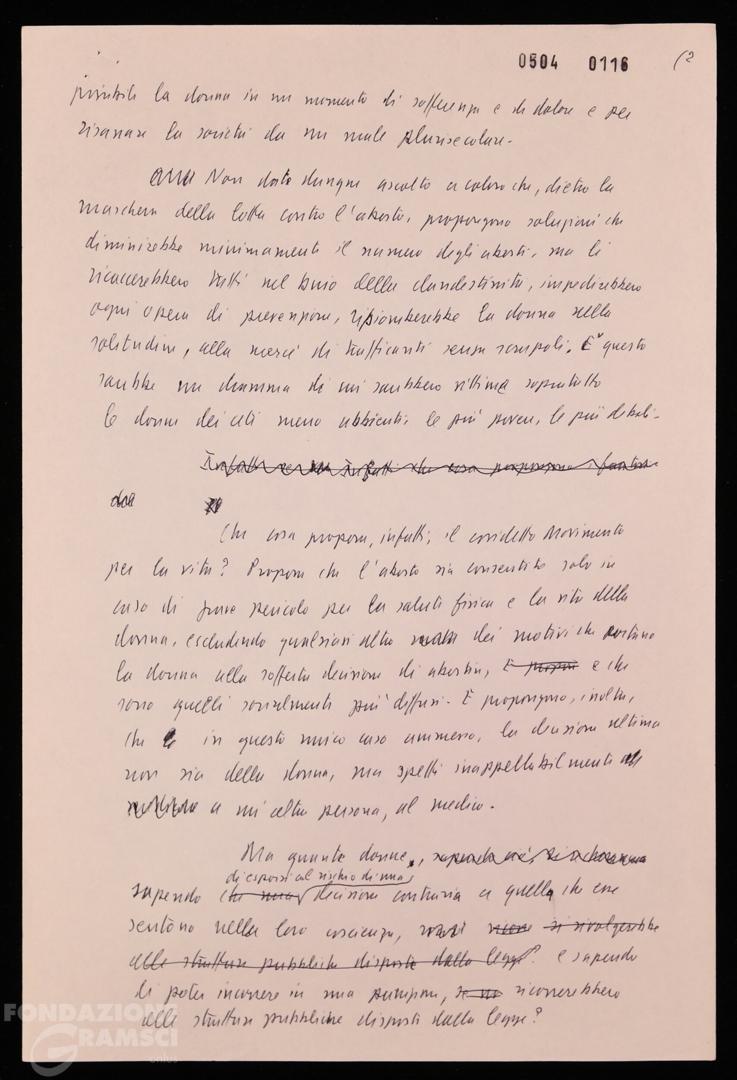 0504 0116 (2
possibile la donna in un momento di sofferenza e di dolore e per
risanare la società da un male plurisecolare.
Non date dunque ascolto a coloro che, dietro la
maschera della lotta contro l'aborto, propongono soluzioni che
diminuirebbe minimamente il numero degli aborti, ma li
ricaccerebbero tutti nel buio della clandestinità, impedirebbero
ogni opera di prevenzione, ripiomberebbe la donna nella
solitudine, alla mercé di trafficanti senza scrupoli. E questo
sarebbe un dramma di cui sarebbero vittime soprattutto
le donne dei ceti meno abbienti, le più povere, le più deboli.
Infatti che cosa propongono i fautori
Che cosa propone, infatti, il cosiddetto Movimento
per la vita? Propone che l'aborto sia consentito solo in
caso di grave pericolo per la salute fisica e la vita della
donna, escludendo qualsiasi altro dei motivi che portano
la donna alla sofferta decisione di abortire, e che
sono quelli socialmente più diffusi. E propongono, inoltre,
che in questo unico caso ammesso, la decisione ultima
non sia della donna, ma spetti inappellabilmente
a un'altra persona, al medico.
Ma quante donne,
di esporsi al rischio di una
sapendo decisione contraria a quella che esse
sentono nella loro coscienza, si rivolgerebbe
alle strutture pubbliche disposte dalla legge? e sapendo
di poter incorrere in una punizione, ricorrerebbero
alle strutture pubbliche disposte dalla legge?
FONDAZIONE
GRAMSCI
onlus